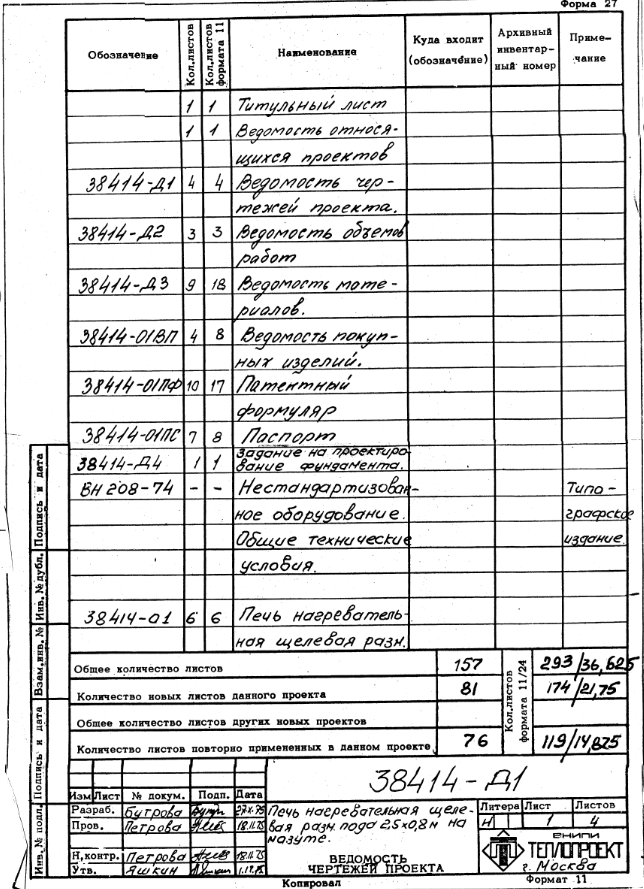 Форма 27
Обозначение Кол.листов Кол.листов формата 11 Наименование Куда входит (обозначение) Архивный инвентарный номер Приме-чание
1 1 Титульный лист
1 1 Ведомость относя-
щихся проектов
38414-Д1 4 4 Ведомость чер-
тежей проекта.
38414-Д2 3 3 Ведомость объемов
работ
38414-Д3 9 18 Ведомость мате-
риалов.
38414-01ВП 4 8 Ведомость покуп-
ных изделий.
38414-01ПФ 10 17 Патентный
формуляр
38414-01ПС 7 8 Паспорт
38414-Д4 1 1 Задание на проектиро-
вание фундамента.
ВН 208-74 - - Нестандартизован- Типо-
ное оборудование. графское
Общие технические издание
условия.
38414-01 6 6 Печь нагреватель-
ная щелевая разн.
Общее количество листов 157 Кол.листов формата 11/24 293/36,625
Количество новых листов данного проекта 81 174/21,75
Общее количество листов других новых проектов
Количество листов повторно примененных в данном проекте 76 119/14,875
38414-Д1
Изм Лист № докум. Подп. Дата
Разраб. Бугрова 27.X.75
Пров. Петрова 18.11.75
Н.контр. Петрова 18.11.75
Утв. Яшкин 1.12.75
Печь нагревательная щеле-
вая разн. пода 2,5х0,8н на
мазуте.
ВЕДОМОСТЬ
ЧЕРТЕЖЕЙ ПРОЕКТА
Литера Лист Листов
Н 1 4
ВНИПИ
ТЕПЛОПРОЕКТ
г. Москва
Копировал Формат 11
Инв. № подл. Подпись и дата Взам.инв. № Инв. № дубл. Подпись и дата